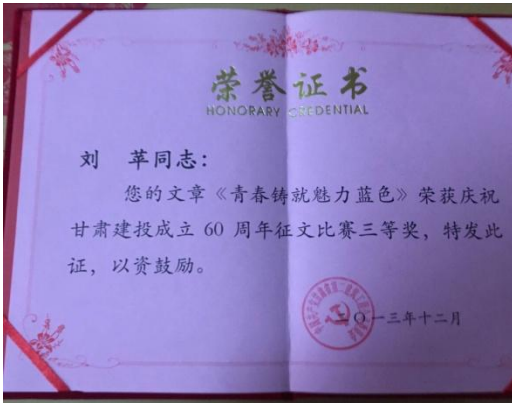 荣誉证书
HONORARY CREDENTIAL
刘 苹同志：
您的文章《青春铸就魅力蓝色》荣获庆祝
甘肃建投成立 60 周年征文比赛三等奖，特发此
证，以资鼓励。
二〇一三年十二月